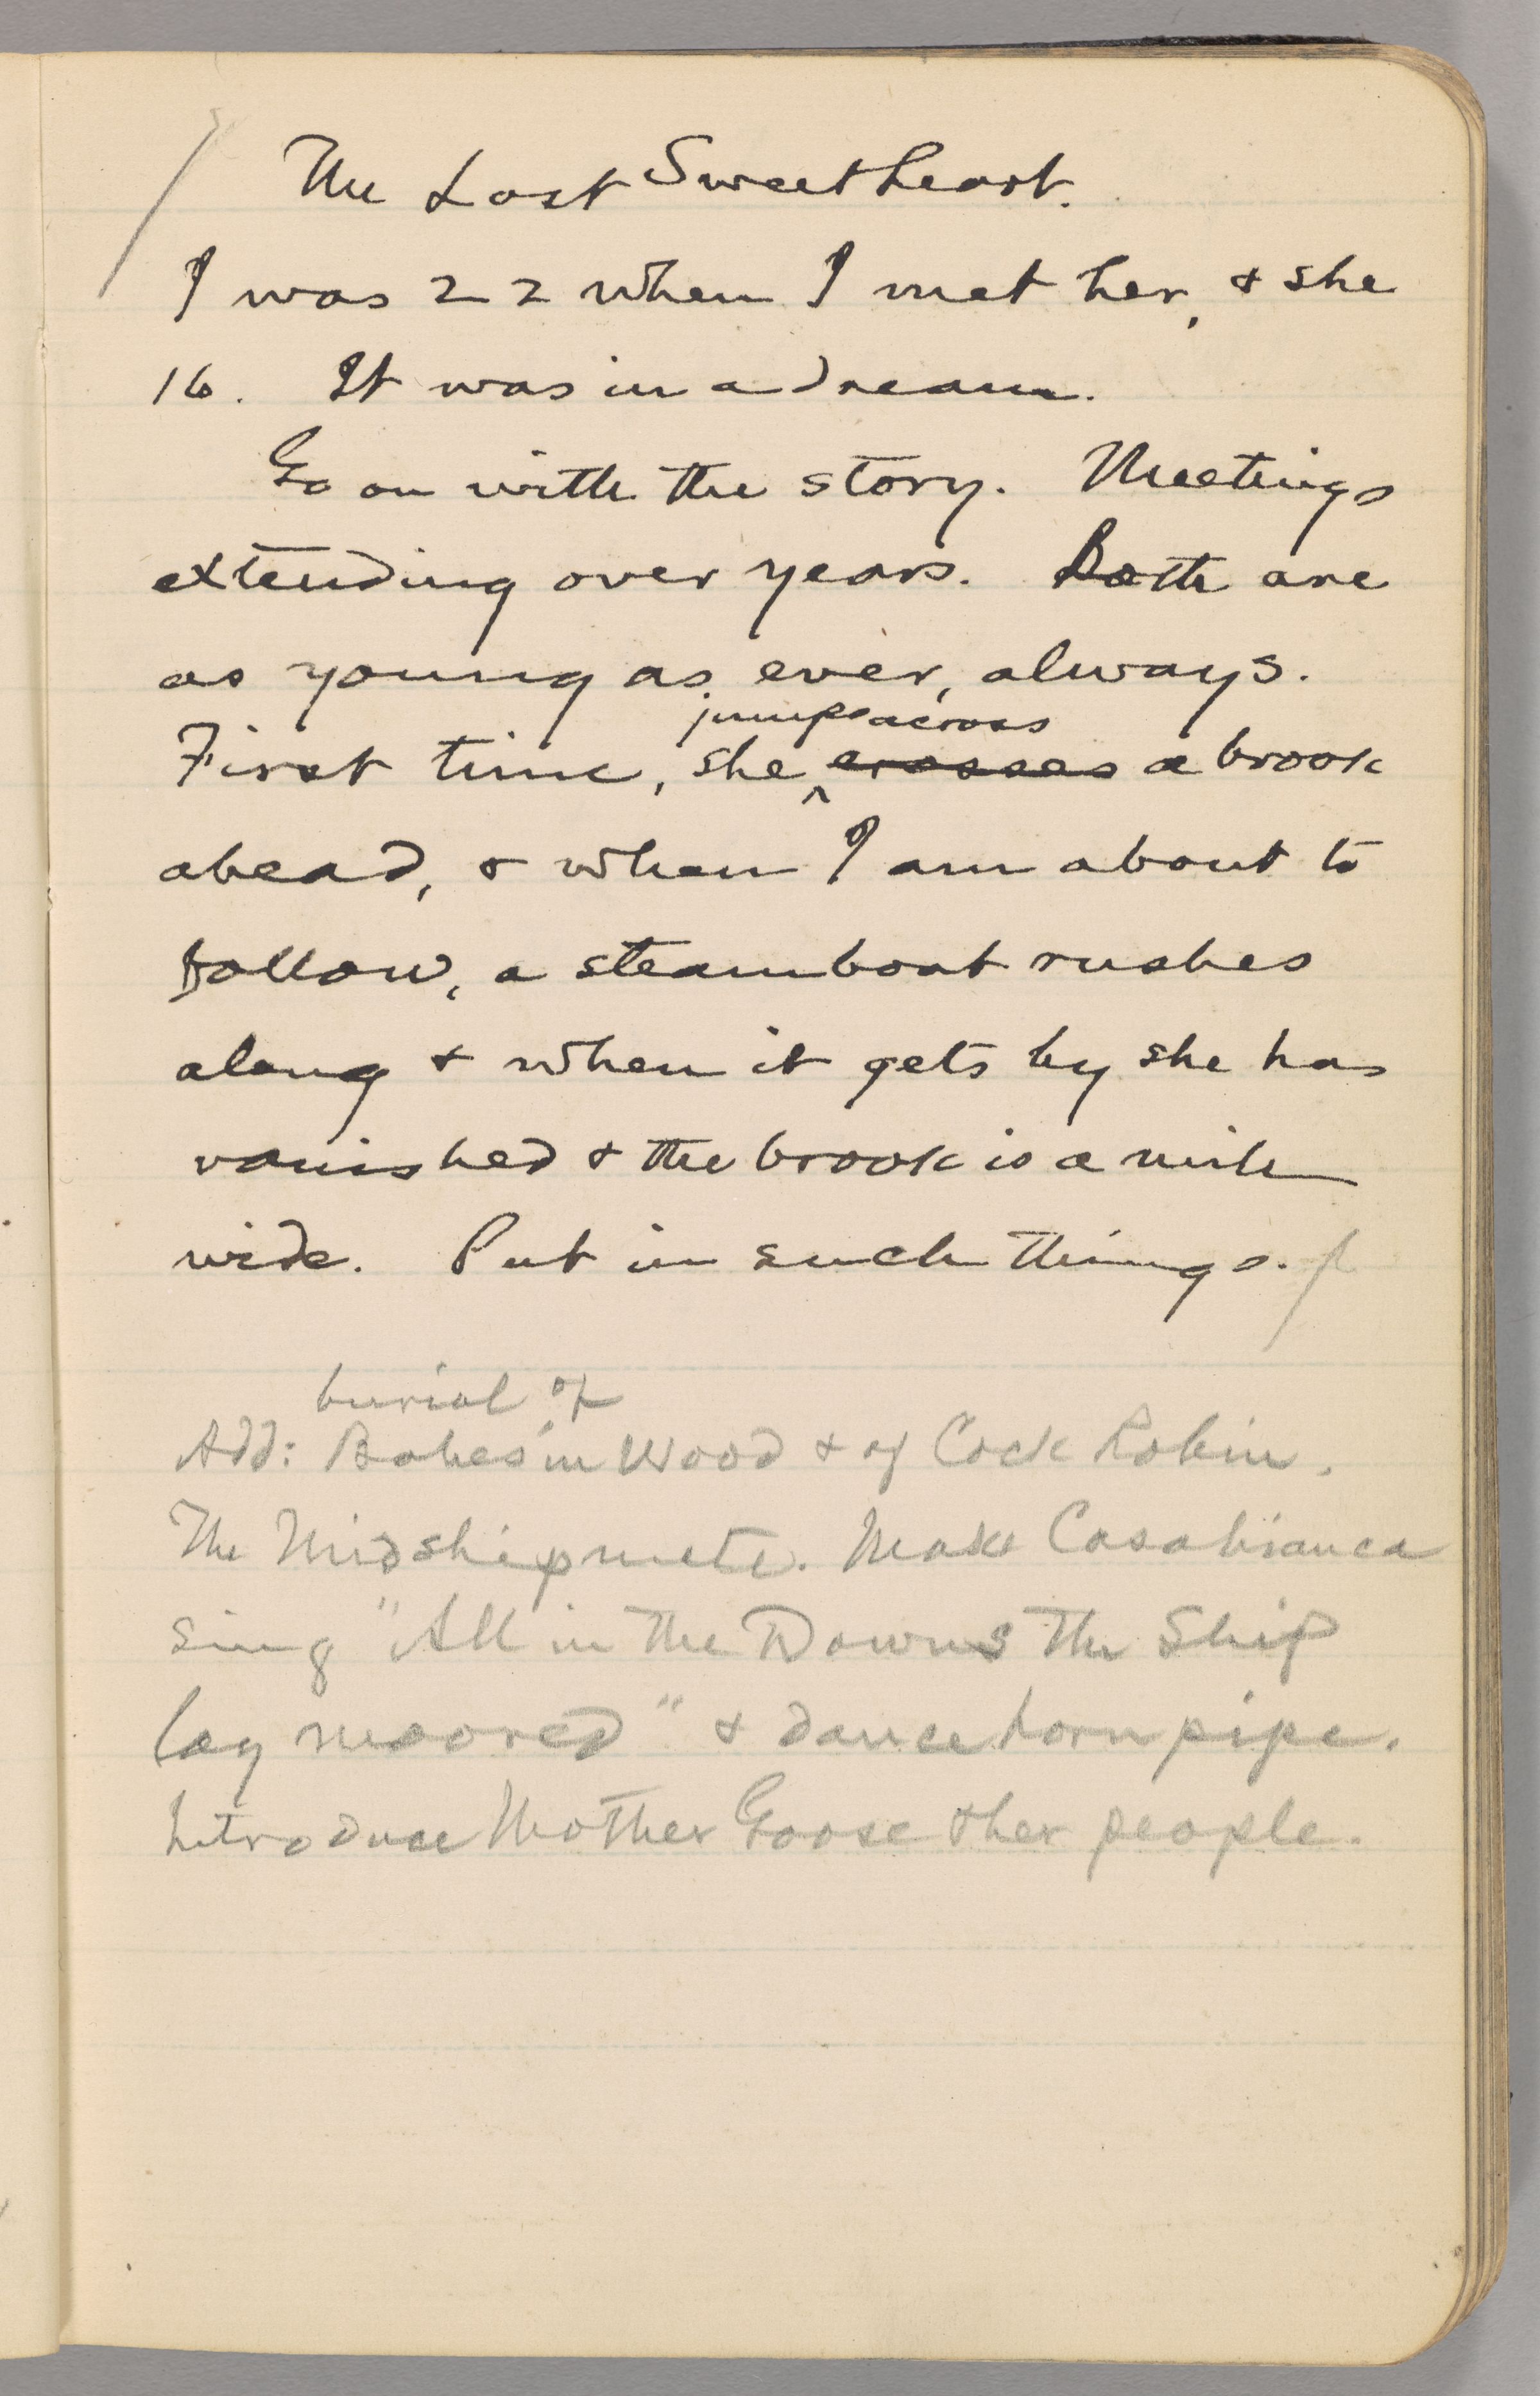 The Lost Sweetheart.
I was 22 when I met her, & she
16. It was in a dream.
Go on with the story. Meetings
extending over years. Both are
as young as ever, always.
jumps across
First time, she ^ crosses a brook
ahead, & when I am about to
follow, a steamboat rushes
along & when it gets by she has
vanished & the brook is a mile
wide. Put in such things.
burial of
Add: Babes in Wood & of Cock Robin.
The Midshipmate. Make Casabianca
sing "All in the Downs the Ship
lay moored" & dance hornpipe.
Introduce Mother Goose & her people.